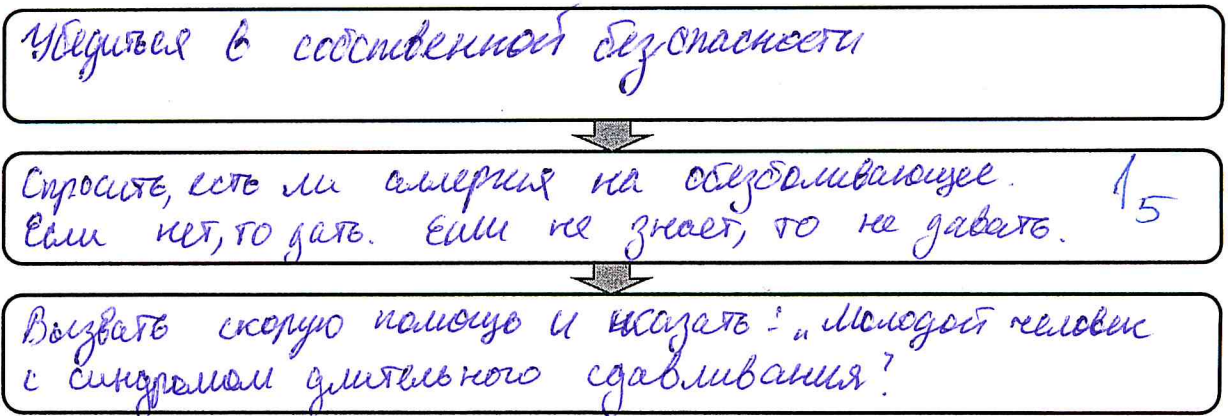 Убедиться в собственной безопасности
Спросить, есть ли аллергия на обезболивающее. 1 5
Если нет, то дать. Если не знает, то не давать.
Вызвать скорую помощь и сказать: „Молодой человек
с синдромом длительного сдавливания"